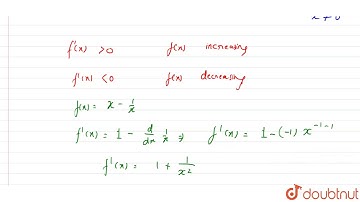 x ≠ 0
f'(x) > 0 f(x) increasing
f'(x) < 0 f(x) decreasing
f(x) = x - 1/x
f'(x) = 1 - d/dx 1/x ⇒ f'(x) = 1 - (-1) x^{-1-1}
f'(x) = 1 + 1/x²
doubtnut